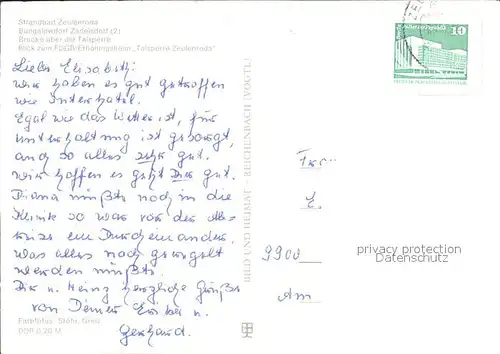 Strandbad Zeulenroda
Bungalowdorf Zadelsdorf (2)
Brücke über die Talsperre
Blick zum FDGB-Erholungsheim „Talsperre Zeulenroda“
Liebe Elisabeth!
wir haben es gut getroffen
wie Interhotel.
Egal wie das Wetter ist, für
Unterhaltung ist gesorgt,
und so alles sehr gut.
wir hoffen es geht Dir gut.
Diana mußte noch in die
Klinik so war vor der Ab-
reise ein Durcheinander,
was alles noch geregelt
werden mußte.
Dir u. Heinz herzliche Grüße
von Deiner Erika u.
Gerhard.
Farbfotos: Stöhr, Greiz
DDR 0,20 M
BILD UND HEIMAT REICHENBACH (VOGTL)
10
Frau
E.
9900
privacy protection
Datenschutz
Am